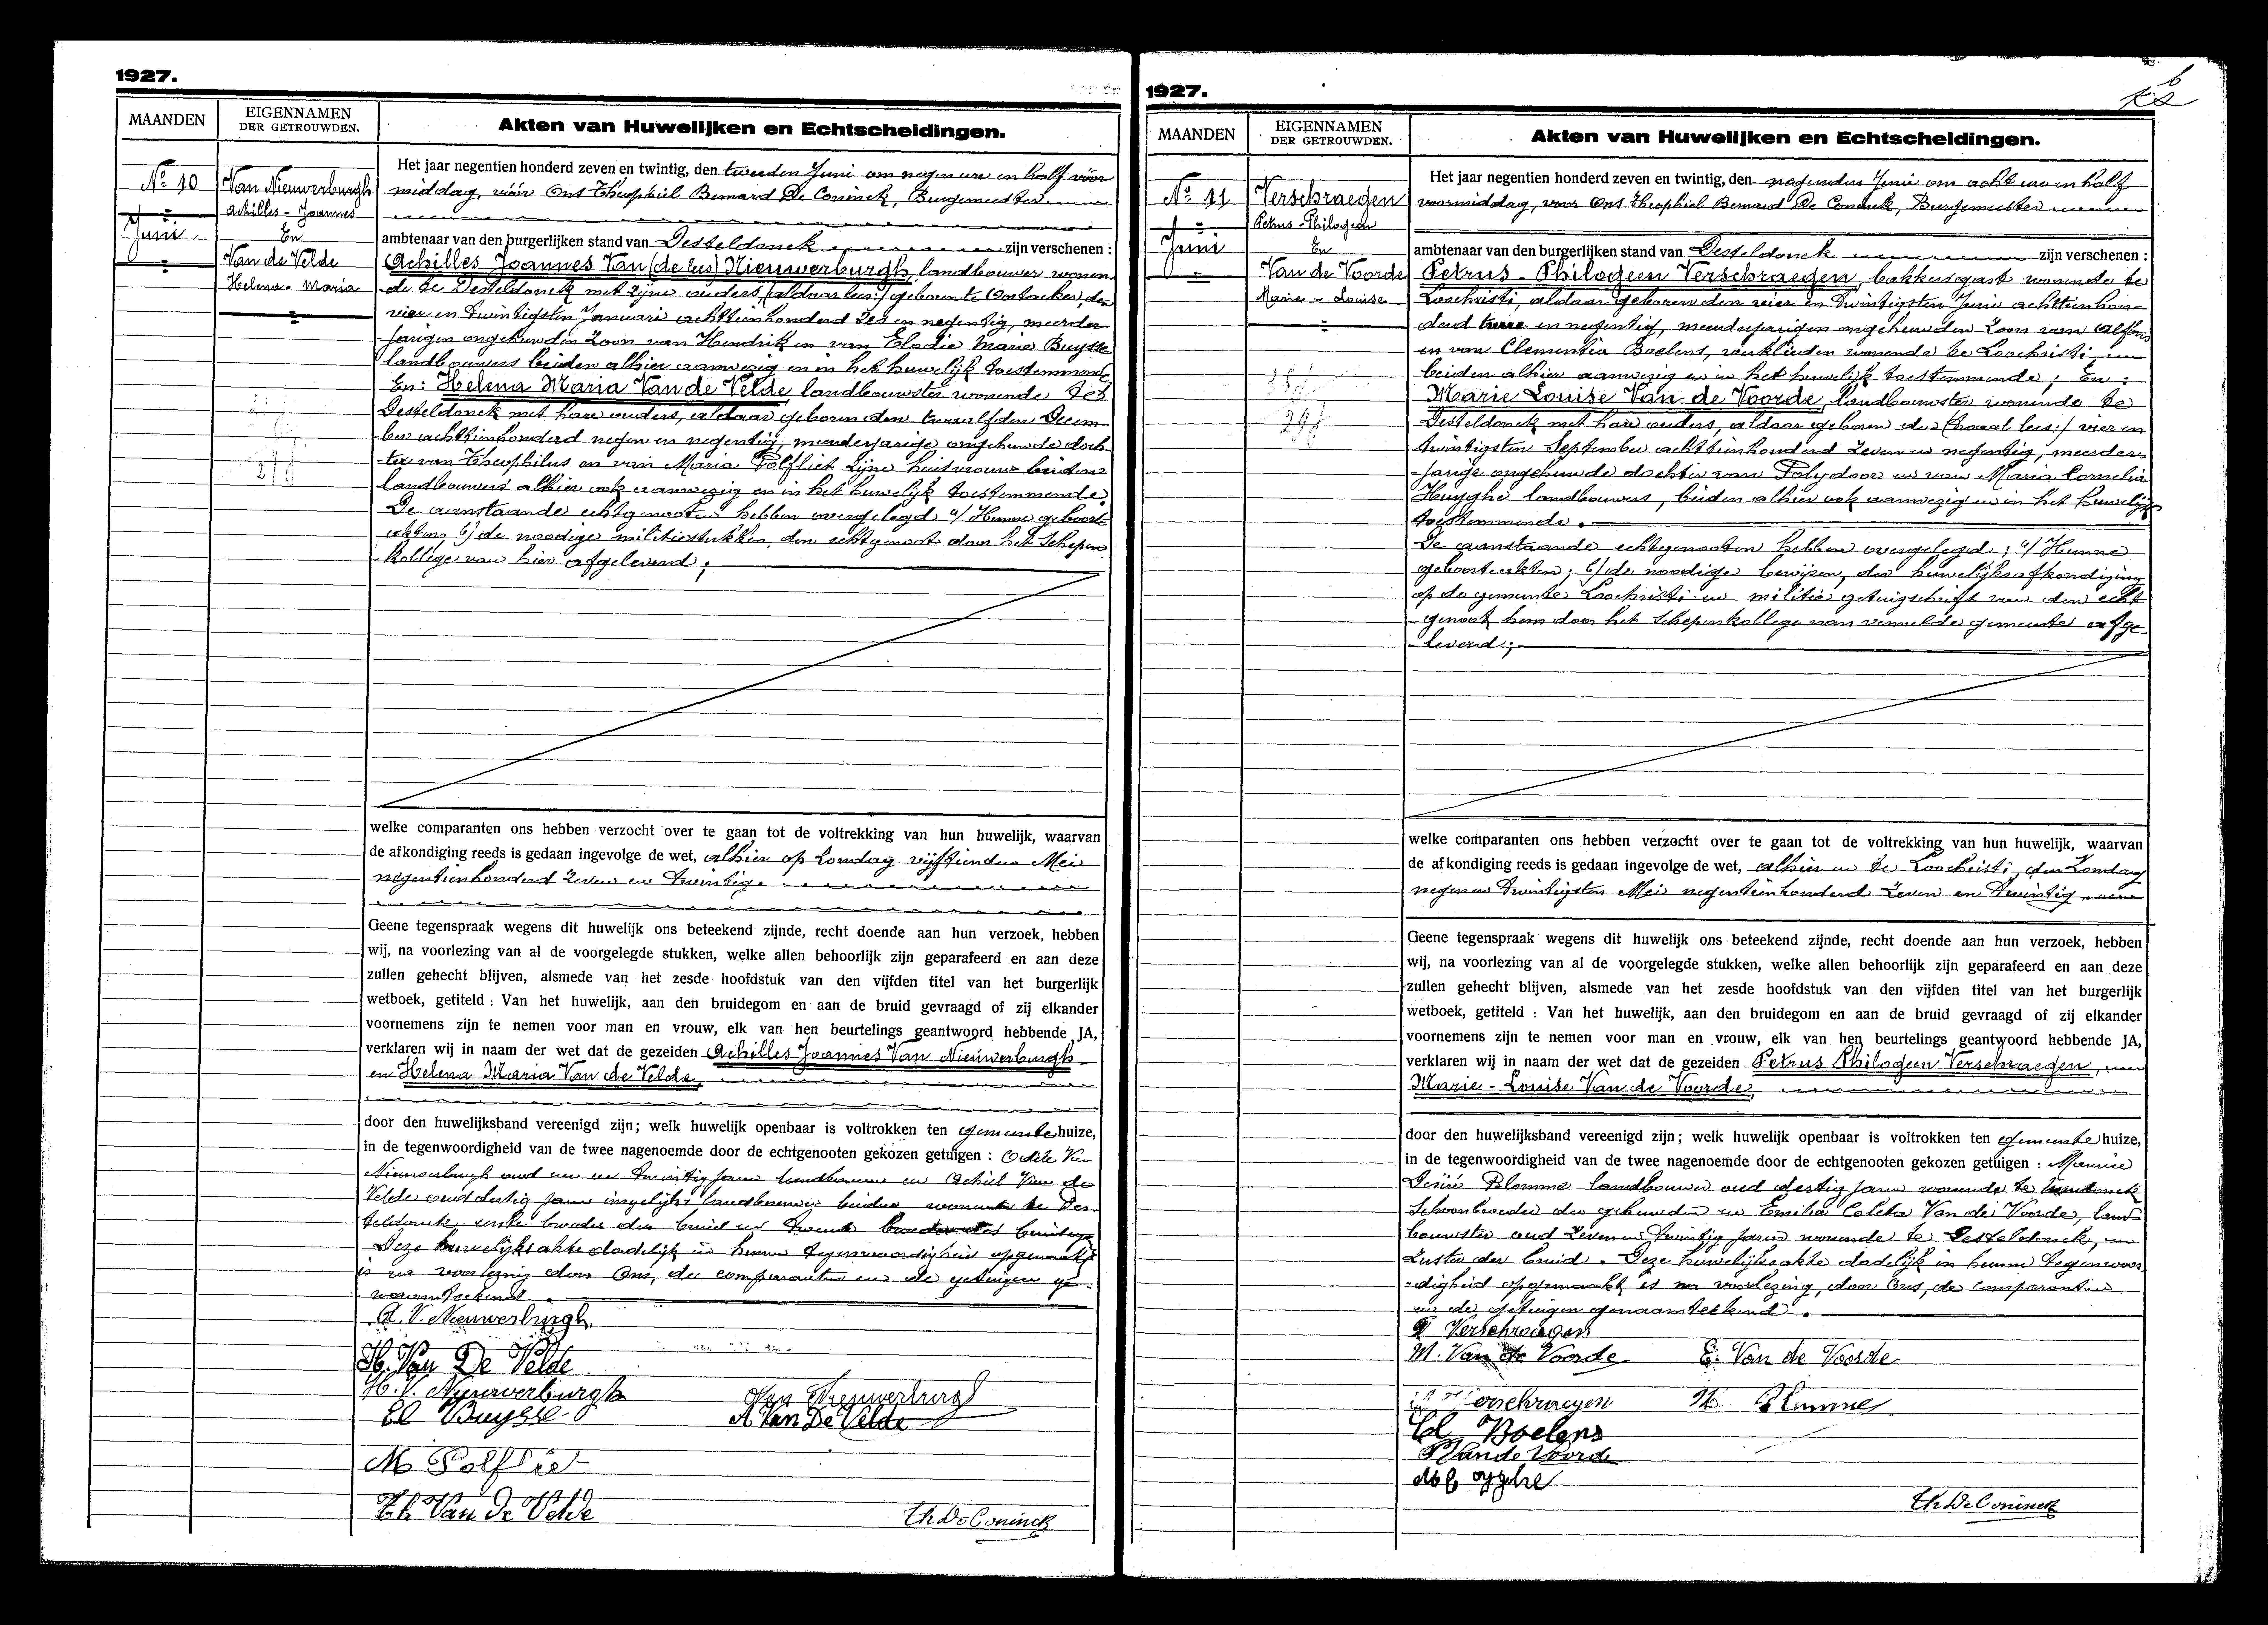 1927.
MAANDEN
EIGENNAMEN
DER GETROUWDEN.
Akten van Huwelijken en Echtscheidingen.
No 10
Juni
Van Nieuwerburgh
Achilles - Joannes
En
Van de Velde
Helena - Maria
Het jaar negentien honderd zeven en twintig, den tweeden Juni om negen ure en half vóór
middag, vóór Ons Theophiel Bernard De Coninck, Burgemeester
ambtenaar van den burgerlijken stand van Desteldonck zijn verschenen :
Achilles Joannes Van (de lees) Nieuwerburgh, landbouwer wonen-
de te Desteldonck met zijne ouders, (aldaar lees:) geboren te Oostacker, den
vier en twintigsten Januari achttienhonderd zes en negentig, meerder-
jarigen ongehuwden Zoon van Hendrik en van Elodie Marie Buysse
landbouwers beiden alhier aanwezig en in het huwelijk toestemmende
En: Helena Maria Van de Velde, landbouwster wonende te
Desteldonck met hare ouders, aldaar geboren den twaalfden Decem-
ber achttienhonderd negen en negentig, meerderjarige ongehuwde doch-
ter van Theophilus en van Maria Polfliet zijne huisvrouw beiden
landbouwers alhier ook aanwezig en in het huwelijk toestemmende
De aanstaande echtgenooten hebben overgelegd a/ Hunne geboorte
akten, b/ de noodige militiestukken, den echtgenoot door het Schepen
kollege van hier afgeleverd;
welke comparanten ons hebben verzocht over te gaan tot de voltrekking van hun huwelijk, waarvan
de afkondiging reeds is gedaan ingevolge de wet, alhier op Zondag vijftienden Mei
negentienhonderd zeven en twintig.
Geene tegenspraak wegens dit huwelijk ons beteekend zijnde, recht doende aan hun verzoek, hebben
wij, na voorlezing van al de voorgelegde stukken, welke allen behoorlijk zijn geparafeerd en aan deze
zullen gehecht blijven, alsmede van het zesde hoofdstuk van den vijfden titel van het burgerlijk
wetboek, getiteld : Van het huwelijk, aan den bruidegom en aan de bruid gevraagd of zij elkander
voornemens zijn te nemen voor man en vrouw, elk van hen beurtelings geantwoord hebbende JA,
verklaren wij in naam der wet dat de gezeiden Achilles Joannes Van Nieuwerburgh
en Helena Maria Van de Velde,
door den huwelijksband vereenigd zijn; welk huwelijk openbaar is voltrokken ten gemeente huize,
in de tegenwoordigheid van de twee nagenoemde door de echtgenooten gekozen getuigen : Odile Van
Nieuwerburgh oud een en twintig jaren landbouwer en Achiel Van de
Velde oud dertig jaren insgelijks landbouwer beiden wonende te Des-
teldonck, broeder der bruid en
Deze huwelijksakte dadelijk in hunne tegenwoordigheid opgemaakt
is na voorlezing door Ons, de comparanten en de getuigen ge-
naamteekend.
A. V. Nieuwerburgh.
H. Van De Velde
H. V. Nieuwerburgh
Van Nieuwerburgh
El Buysse
A Van De Velde
M Polfliet
Th Van De Velde
Th De Coninck
1927.
MAANDEN
EIGENNAMEN
DER GETROUWDEN.
Akten van Huwelijken en Echtscheidingen.
No 11
Juni
Verschraegen
Petrus - Philogeen
En
Van de Voorde
Marie - Louise
Het jaar negentien honderd zeven en twintig, den negenden Juni om acht ure en half
voormiddag, voor Ons Theophiel Bernard De Coninck, Burgemeester
ambtenaar van den burgerlijken stand van Desteldonck zijn verschenen :
Petrus - Philogeen Verschraegen, bakkersgast wonende te
Loochristi, aldaar geboren den vier en twintigsten Juni achttienhon-
derd twee en negentig, meerderjarigen ongehuwden Zoon van Alfons
en van Clementia Boelens, werklieden wonende te Loochristi,
beiden alhier aanwezig en in het huwelijk toestemmende; En :
Marie Louise Van de Voorde, landbouwster wonende te
Desteldonck met hare ouders, aldaar geboren den vier en
twintigsten September achttienhonderd zeven en negentig, meerder-
jarige ongehuwde dochter van Polydoor en van Maria Cornelia
Huyghe landbouwers, beiden alhier ook aanwezig en in het huwelijk
toestemmende.
De aanstaande echtgenooten hebben overgelegd; a/ Hunne
geboorteakten; b/ de noodige bewijzen, der huwelijksafkondiging
op de gemeente Loochristi en militie getuigschrift van den echt
genoot hem door het Schepenkollege van vermelde gemeente afge-
leverd;
welke comparanten ons hebben verzocht over te gaan tot de voltrekking van hun huwelijk, waarvan
de afkondiging reeds is gedaan ingevolge de wet, alhier en te Loochristi, den Zondag
negen en twintigsten Mei negentienhonderd zeven en twintig.
Geene tegenspraak wegens dit huwelijk ons beteekend zijnde, recht doende aan hun verzoek, hebben
wij, na voorlezing van al de voorgelegde stukken, welke allen behoorlijk zijn geparafeerd en aan deze
zullen gehecht blijven, alsmede van het zesde hoofdstuk van den vijfden titel van het burgerlijk
wetboek, getiteld : Van het huwelijk, aan den bruidegom en aan de bruid gevraagd of zij elkander
voornemens zijn te nemen voor man en vrouw, elk van hen beurtelings geantwoord hebbende JA,
verklaren wij in naam der wet dat de gezeiden Petrus Philogeen Verschraegen, en
Marie - Louise Van de Voorde,
door den huwelijksband vereenigd zijn; welk huwelijk openbaar is voltrokken ten gemeente huize,
in de tegenwoordigheid van de twee nagenoemde door de echtgenooten gekozen getuigen : Maurice
Desiré Blomme landbouwer oud dertig jaren wonende te
Schoonbroeder der gehuwden en Emilia Coleta Van de Voorde, land-
bouwster oud zeven en twintig jaren wonende te Desteldonck,
Zuster der bruid. Deze huwelijksakte dadelijk in hunne tegenwoor-
digheid opgemaakt is na voorlezing, door Ons, de comparanten
en de getuigen genaamteekend.
P Verschraegen
M. Van de Voorde
E. Van de Voorde
Verschraegen
M Blomme
Cl Boelens
P Van de Voorde
Th De Coninck